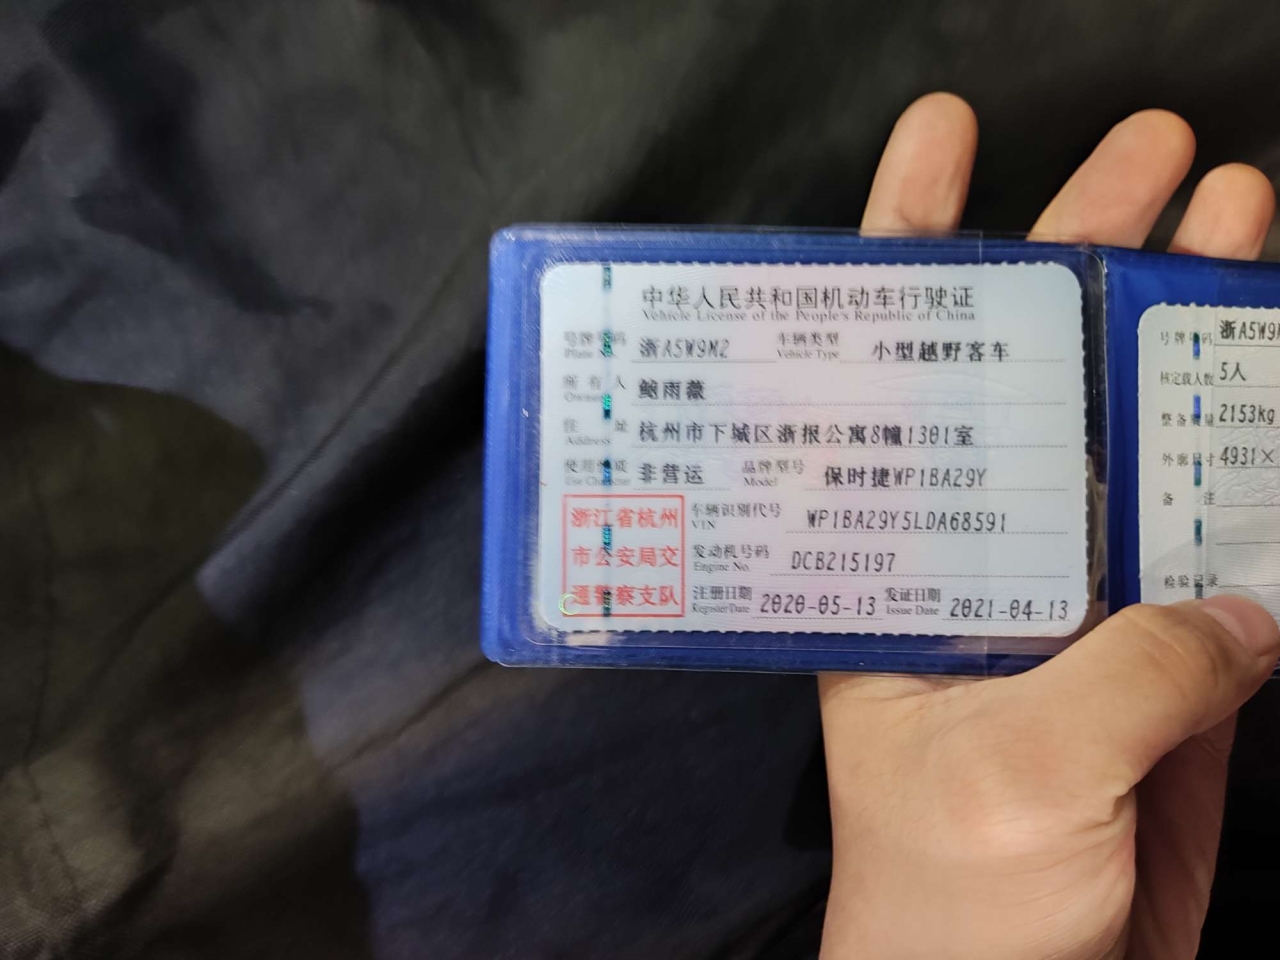 中华人民共和国机动车行驶证
Vehicle License of the People's Republic of China
号牌号码 浙A5W9M2 车辆类型 小型越野客车
Plate No. Vehicle Type
所有人 鲍雨薇
Owner
住址 杭州市下城区浙报公寓8幢1301室
Address
使用性质 非营运 品牌型号 保时捷WP1BA29Y
Use Character Model
浙江省杭州
市公安局交
通警察支队
车辆识别代号 WP1BA29Y5LDA68591
VIN
发动机号码 DCB215197
Engine No.
注册日期 2020-05-13 发证日期 2021-04-13
Register Date Issue Date
号牌号码 浙A5W9
核定载人数 5人
整备质量 2153kg
外廓尺寸 4931×
备注
检验记录